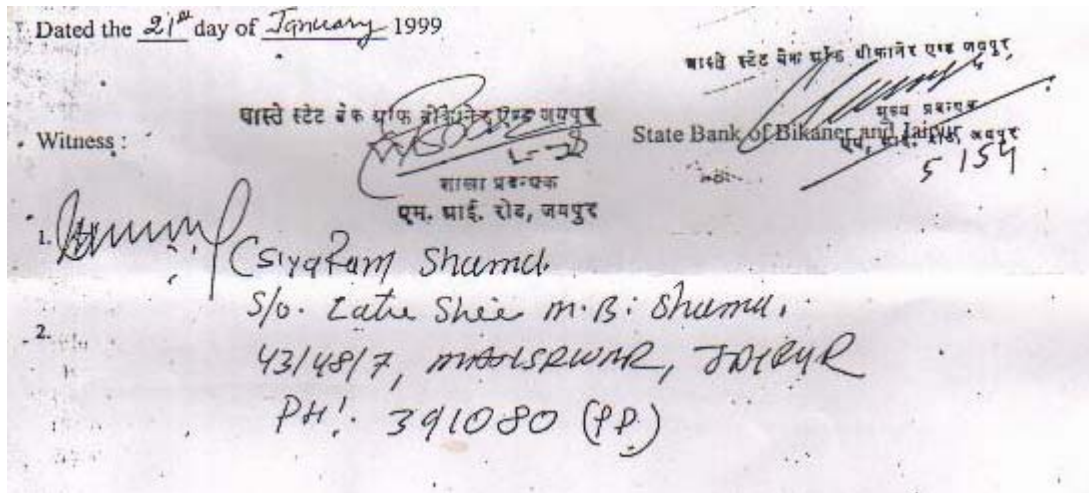 Dated the 21st day of January 1999
वास्ते स्टेट बैंक ऑफ बीकानेर एण्ड जयपुर
मुख्य प्रबन्धक
एम. आई. रोड, जयपुर
5154
वास्ते स्टेट बैंक ऑफ बीकानेर एण्ड जयपुर
शाखा प्रबन्धक
एम. आई. रोड, जयपुर
Witness :
State Bank of Bikaner and Jaipur
1.
(Siyaram Sharma
S/o. Late Shree M.B. Sharma.
2.
43/48/7, MANSROVAR, JAIPUR
PH: 391080 (P.P.)